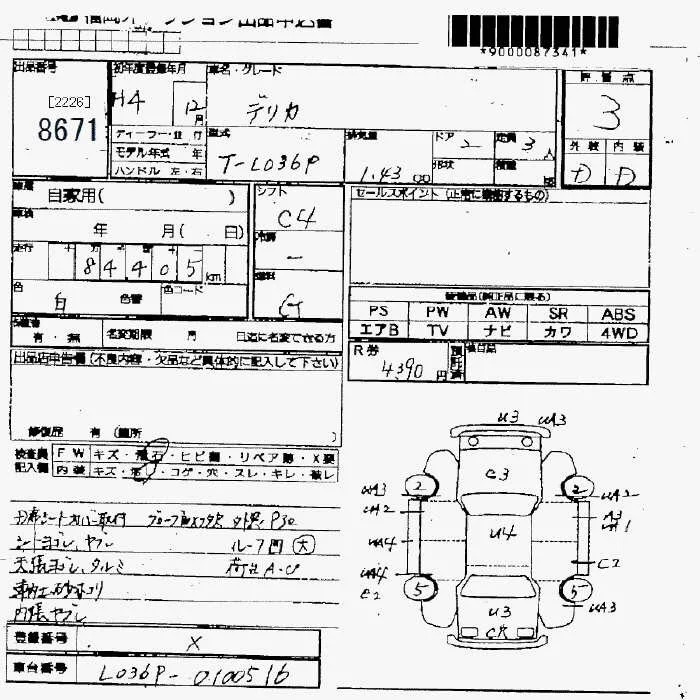 *9000087341*
出品番号 初年度登録年月 車名・グレード 評価点
[2226]
8671
H4 12月 デリカ 3
ディーラー・並行 型式 排気量 ドア 2 定員 3人 外装 内装
モデル年式 年
ハンドル 左・右 T-L036P 1.43 00 形状 積量 D D
車歴 自家用( ) シフト C4 セールスポイント (正確に記載するもの)
車検 年 月( 日) 冷房 -
走行 84405km 燃料 G
色 白 色替 色コード
装備品(純正品に限る)
PS PW AW SR ABS
エアB TV ナビ カワ 4WD
有・無 名変期限 月 日迄に名変できる方
R券 4390円 預託済 後日品
出品店申告欄(不良内容・欠品など具体的に記入して下さい)
修復歴 有 (箇所 )
検査員 FW キズ・飛石・ヒビ割・リペア跡・X要
記入欄 内装 キズ・汚レ・コゲ・穴・スレ・キレ・破レ
シートヨゴレ、ヤブレ ルーフ凹 大
天張ヨゴレ、タルミ 荷台A・U
内張ヤブレ
登録番号 X
車台番号 L036P-0100516
U3 UA3
C3
UA3 2 2 UA2
UA2 A3
UA4 U4 UA1
UA4 C2
C2 5 5 UA3
U3
CR